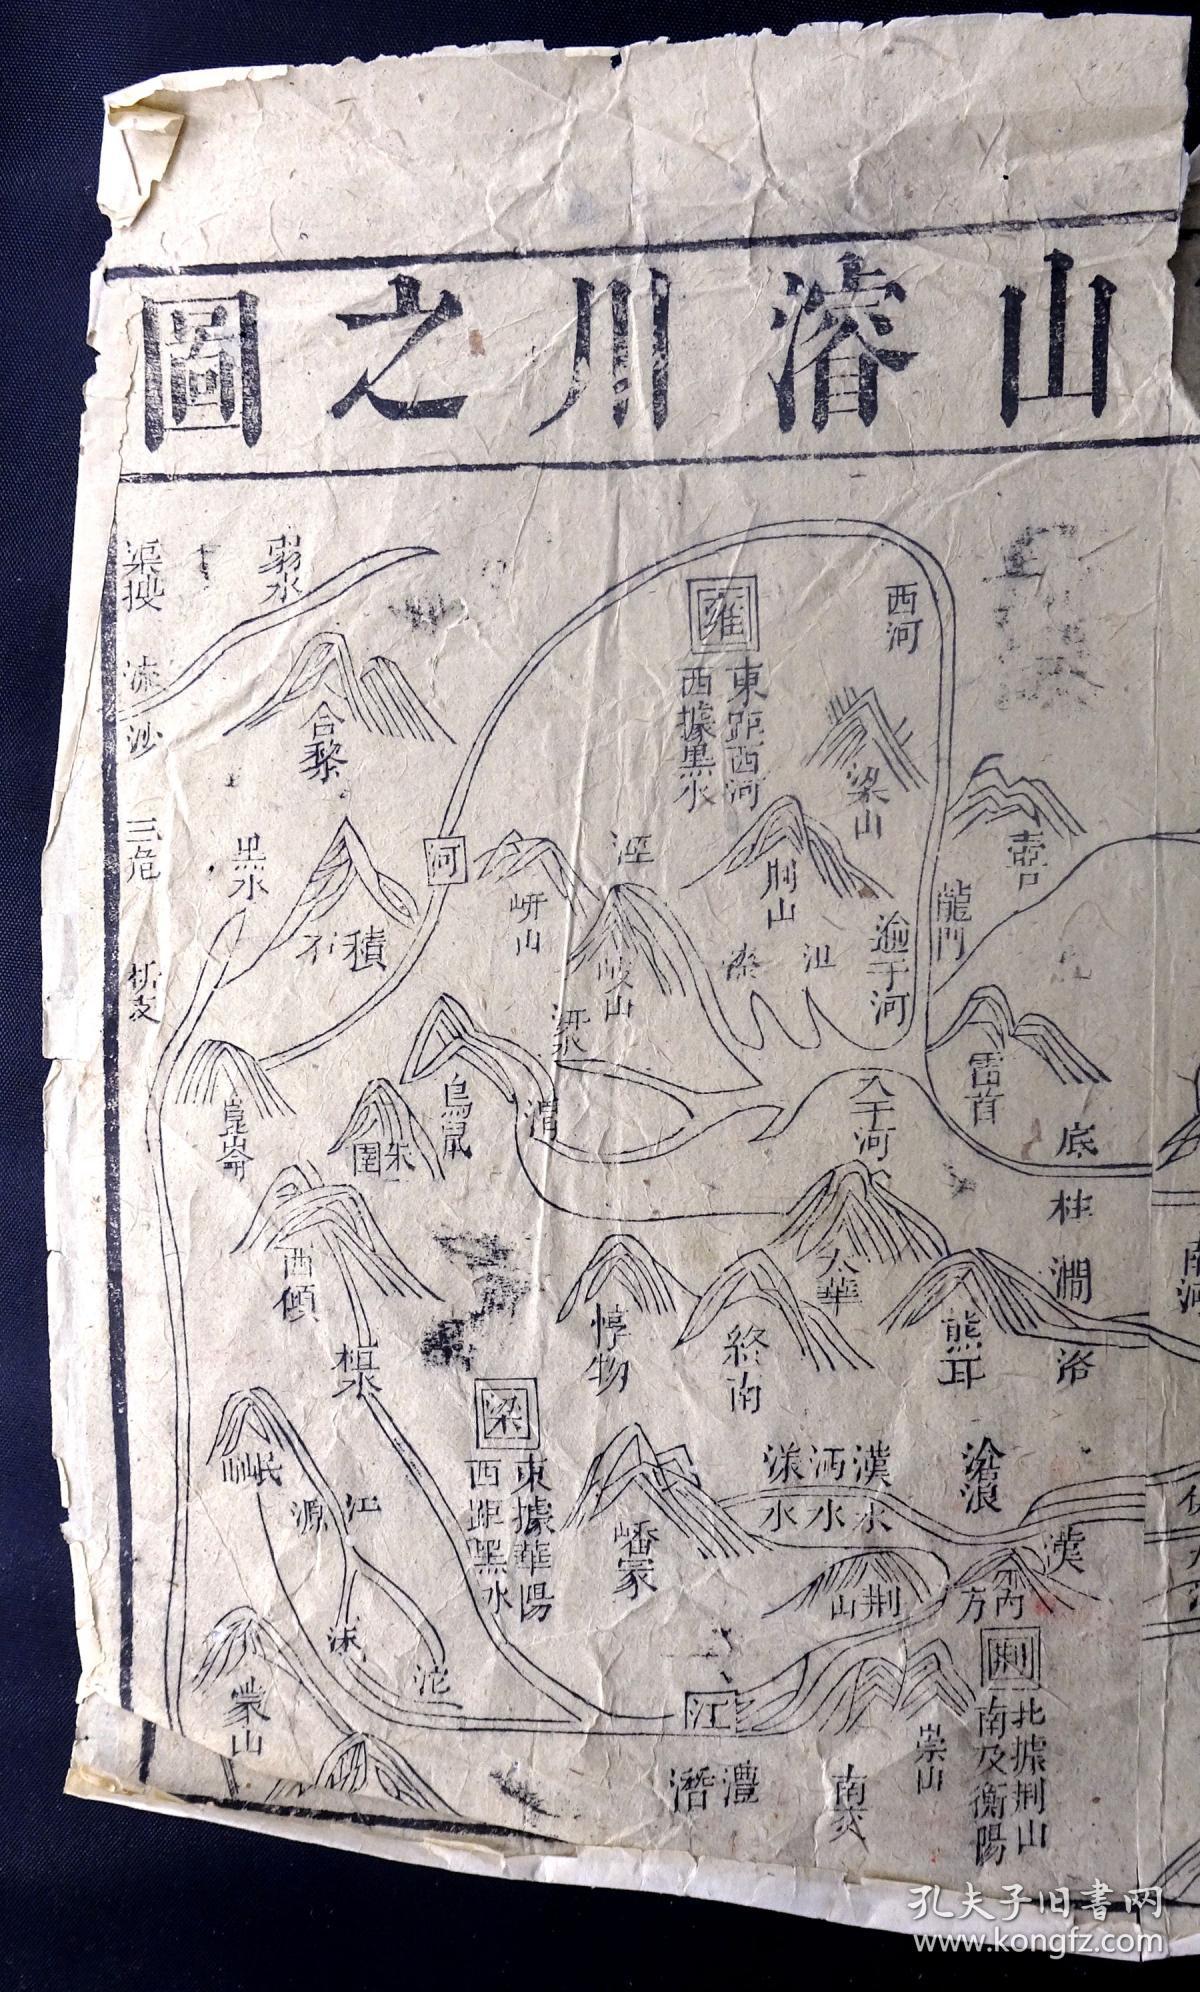 山濬川之圖
西河
雍
東距西河
西據黑水
弱水
渠搜
流沙
合黎
梁山
壺口
龍門
三危
黑水
河
積石
岍山
涇
荊山
漆
沮
逾于河
岐山
汧水
析支
崑崙
朱圉
鳥鼠
渭
入于河
雷首
底柱
西傾
桓水
惇物
終南
太華
熊耳
澗
洛
南河
岷山
江源
梁
東據華陽
西距黑水
嶓冢
漢水
沔水
漾水
滄浪
漢
荊山
內方
沫
沱
蒙山
江
荊
北據荊山
南及衡陽
崇山
南交
澧
潛
孔夫子旧書网
www.kongfz.com